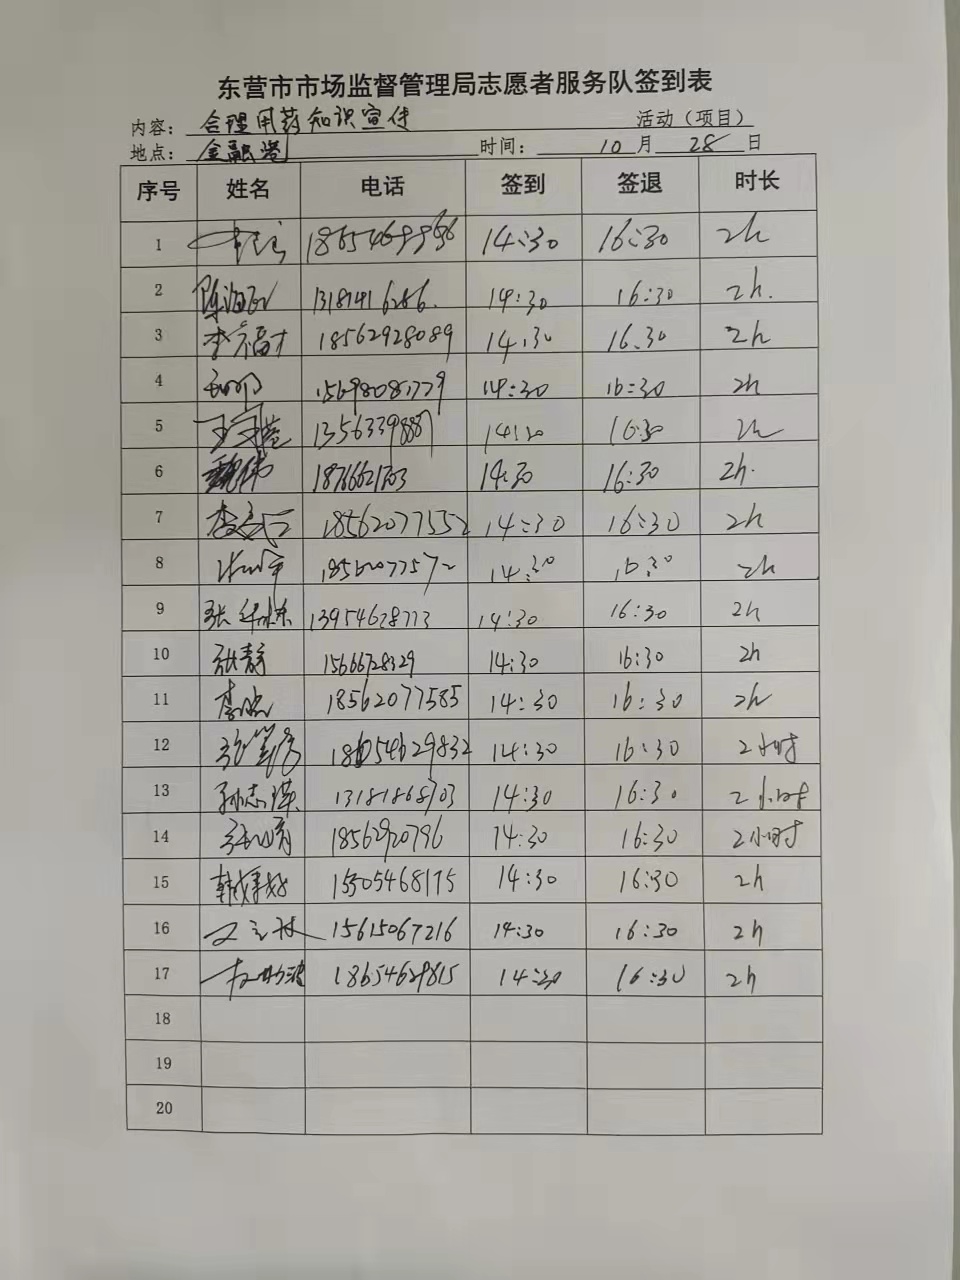 东营市市场监督管理局志愿者服务队签到表
内容：合理用药知识宣传 活动（项目）
地点：金融港 时间： 10 月 28 日
序号 姓名 电话 签到 签退 时长
1 14:30 16:30 2h
2 14:30 16:30 2h.
3 李福才 18562928089 14:30 16:30 2h
4 14:30 16:30 2h
5 16:30 2h
6 魏伟 14:30 16:30 2h.
7 18562077552 14:30 16:30 2h
8 14:30 16:30 2h
9 13954628773 14:30 16:30 2h
10 张静 15666728329 14:30 16:30 2h
11 18562077585 14:30 16:30 2h
12 18654629832 14:30 16:30 2小时
13 孙志瑛 13181868703 14:30 16:30 2小时
14 18562920796 14:30 16:30 2小时
15 15505468175 14:30 16:30 2h
16 15615067216 14:30 16:30 2h
17 18654629815 14:30 16:30 2h
18
19
20